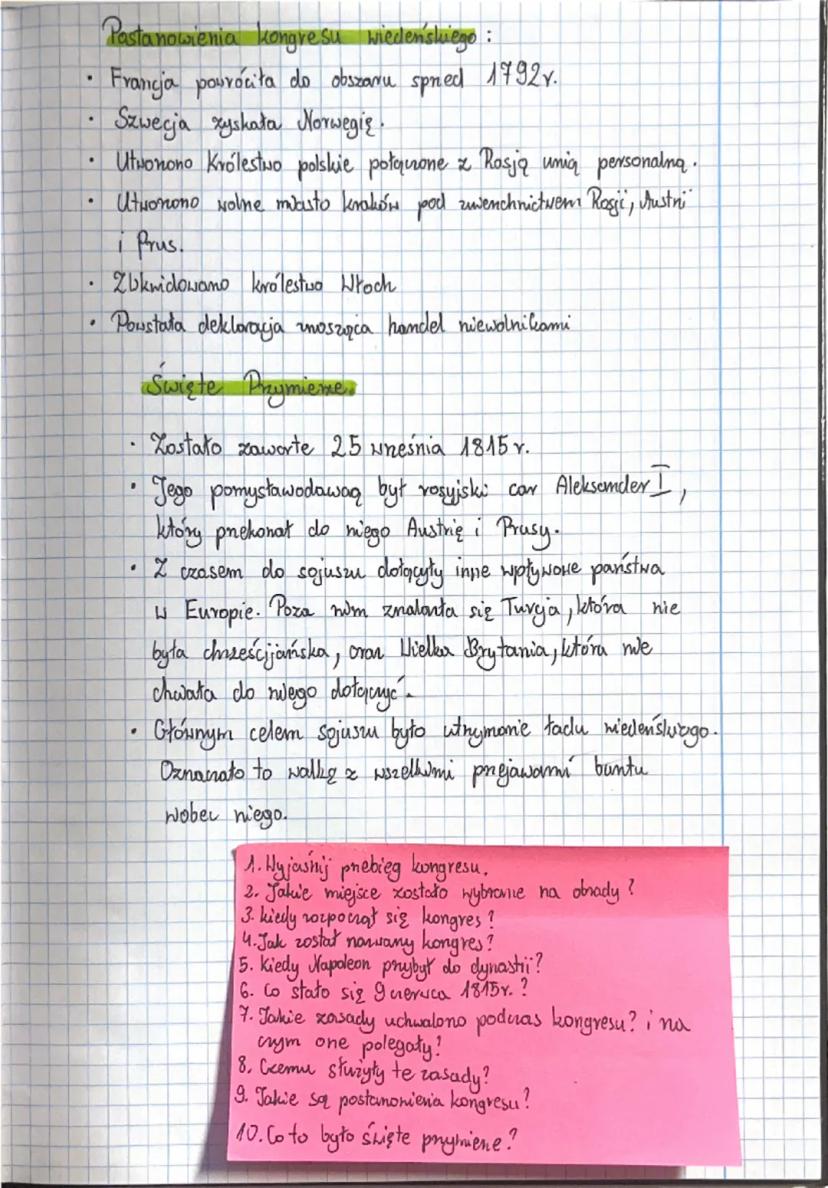 Postanowienia kongresu wiedeńskiego :
• Francja powróciła do obszaru sprzed 1792r.
• Szwecja zyskała Norwegię.
• Utworzono Królestwo polskie połączone z Rosją unią personalną.
• Utworzono wolne miasto kraków pod zwierzchnictwem Rosji, Austri
i Prus.
• Zlikwidowano królestwo Włoch
• Powstała deklaracja znosząca handel niewolnikami
Święte Przymierze.
• Zostało zawarte 25 września 1815 r.
• Jego pomysławodawcą był rosyjski car Aleksander I,
który przekonał do niego Austrię i Prusy.
• Z czasem do sojuszu dołączyły inne wpływowe państwa
w Europie. Poza nim znalazła się Turcja, która nie
była chrześcijańska, oraz Wielka Brytania, która nie
chciała do niego dołączyć.
• Głównym celem sojuszu było utrzymanie ładu wiedeńskiego.
Oznaczało to walkę z wszelkimi przejawami buntu
wobec niego.
1. Wyjaśnij przebieg kongresu.
2. Jakie miejsce zostało wybranie na obrady?
3. kiedy rozpoczął się kongres?
4. Jak został nazwany kongres?
5. Kiedy Napoleon przybył do dynastii?
6. Co stało się 9 czerwca 1815r.?
7. Jakie zasady uchwalono podczas kongresu? i na
czym one polegały?
8. Czemu służyły te zasady?
9. Jakie są postanowienia kongresu?
10. Co to było święte przymierze?